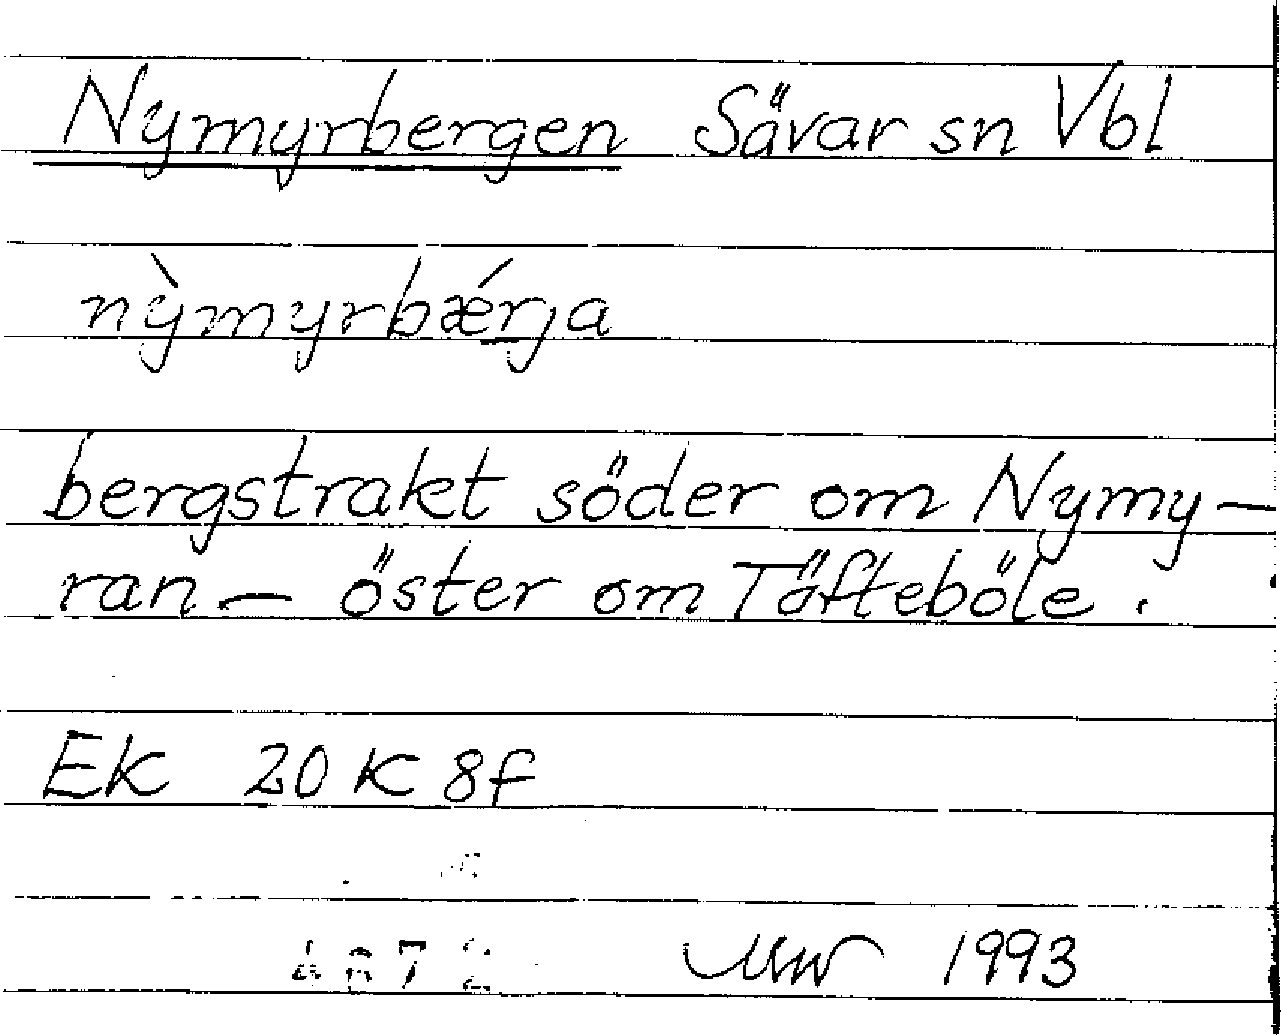 Nymyrbergen Sävar sn Vbl
nỳmyrbǽrja
bergstrakt söder om Nymy-
ran - öster om Täfteböle.
EK 20 K 8f
1993